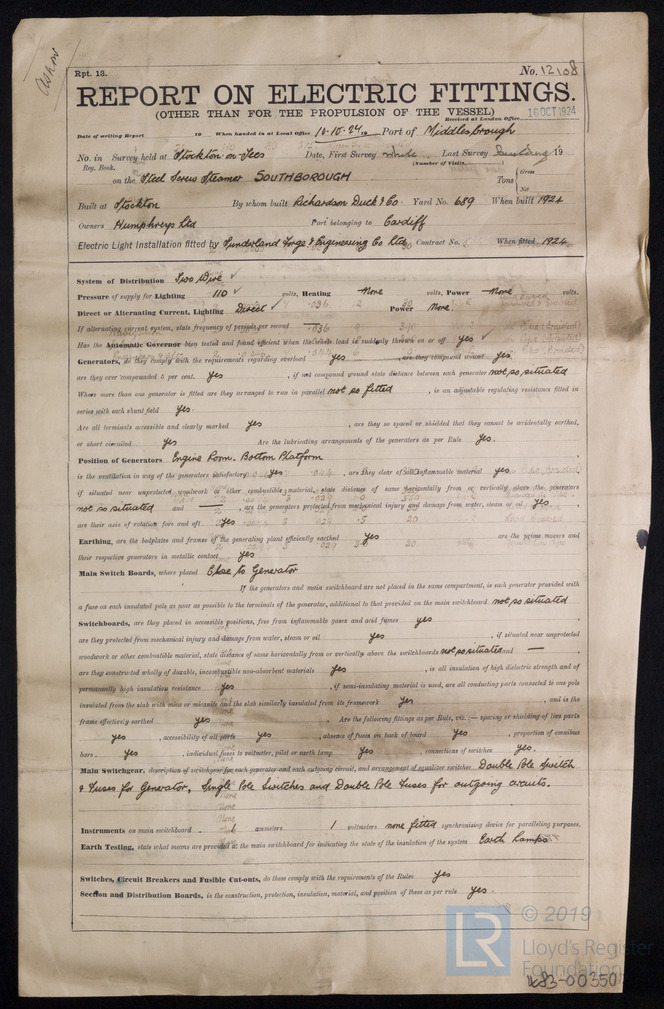 Askow
Rpt. 13.
No. 12108
REPORT ON ELECTRIC FITTINGS.
(OTHER THAN FOR THE PROPULSION OF THE VESSEL)
Received at London Office 16 OCT 1924
Date of writing Report 19 When handed in at Local Office 10-10-24 19 Port of Middlesbrough
No. in Survey held at Stockton-on-Tees Date, First Survey while Last Survey building 19
Reg. Book. (Number of Visits
on the Steel Screw Steamer SOUTHBOROUGH Tons { Gross Net
Built at Stockton By whom built Richardson Duck & Co Yard No. 689 When built 1924
Owners Humphreys Ltd Port belonging to Cardiff
Electric Light Installation fitted by Sunderland Forge & Engineering Co Ltd Contract No. When fitted 1924
System of Distribution Two Wire ✓
Pressure of supply for Lighting 110 ✓ volts, Heating None volts, Power None volts.
Direct or Alternating Current, Lighting Direct ✓ Power None.
If alternating current system, state frequency of periods per second
Has the Automatic Governor been tested and found efficient when the whole load is suddenly thrown on or off yes ✓
Generators, do they comply with the requirements regarding overload yes , are they compound wound yes
are they over compounded 5 per cent. yes , if not compound wound state distance between each generator not so situated
Where more than one generator is fitted are they arranged to run in parallel not so fitted , is an adjustable regulating resistance fitted in
series with each shunt field yes.
Are all terminals accessible and clearly marked yes , are they so spaced or shielded that they cannot be accidentally earthed,
or short circuited yes Are the lubricating arrangements of the generators as per Rule yes.
Position of Generators Engine Room. Bottom Platform
is the ventilation in way of the generators satisfactory yes , are they clear of all inflammable material yes
if situated near unprotected woodwork or other combustible material, state distance of same horizontally from or vertically above the generators
not so situated and — , are the generators protected from mechanical injury and damage from water, steam or oil yes
are their axis of rotation fore and aft yes
Earthing, are the bedplates and frames of the generating plant efficiently earthed yes are the prime movers and
their respective generators in metallic contact yes
Main Switch Boards, where placed Close to Generator
If the generators and main switchboard are not placed in the same compartment, is each generator provided with
a fuse on each insulated pole as near as possible to the terminals of the generator, additional to that provided on the main switchboard not so situated
Switchboards, are they placed in accessible positions, free from inflammable gases and acid fumes yes
are they protected from mechanical injury and damage from water, steam or oil yes , if situated near unprotected
woodwork or other combustible material, state distance of same horizontally from or vertically above the switchboards not so situated and —
are they constructed wholly of durable, incombustible non-absorbent materials yes , is all insulation of high dielectric strength and of
permanently high insulation resistance yes , if semi-insulating material is used, are all conducting parts connected to one pole
insulated from the slab with mica or micanite and the slab similarly insulated from its framework yes , and is the
frame effectively earthed yes Are the following fittings as per Rule, viz. :— spacing or shielding of live parts
yes , accessibility of all parts yes , absence of fuses on back of board yes , proportion of omnibus
bars yes , individual fuses to voltmeter, pilot or earth lamp yes , connections of switches yes.
Main Switchgear, description of switchgear for each generator and each outgoing circuit, and arrangement of equalizer switches Double Pole Switch
& Fuses for Generator, Single Pole Switches and Double Pole Fuses for outgoing circuits.
Instruments on main switchboard 1 ammeters 1 voltmeters none fitted synchronising device for paralleling purposes.
Earth Testing, state what means are provided at the main switchboard for indicating the state of the insulation of the system Earth Lamps
Switches, Circuit Breakers and Fusible Cut-outs, do these comply with the requirements of the Rules yes
Section and Distribution Boards, is the construction, protection, insulation, material, and position of these as per rule yes.
LR © 2019
Lloyd's Register
Foundation
W83-00350